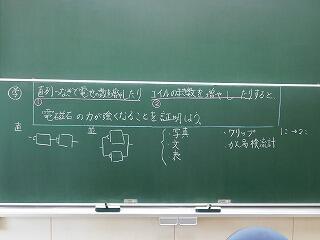 学 直列つなぎで電池の数を増やしたり コイルのまき数を増やしたりすると、
① ②
電磁石の力が強くなることを証明しよう
直 並
・写真 ・クリップ
・文 ・かん易検流計
・表